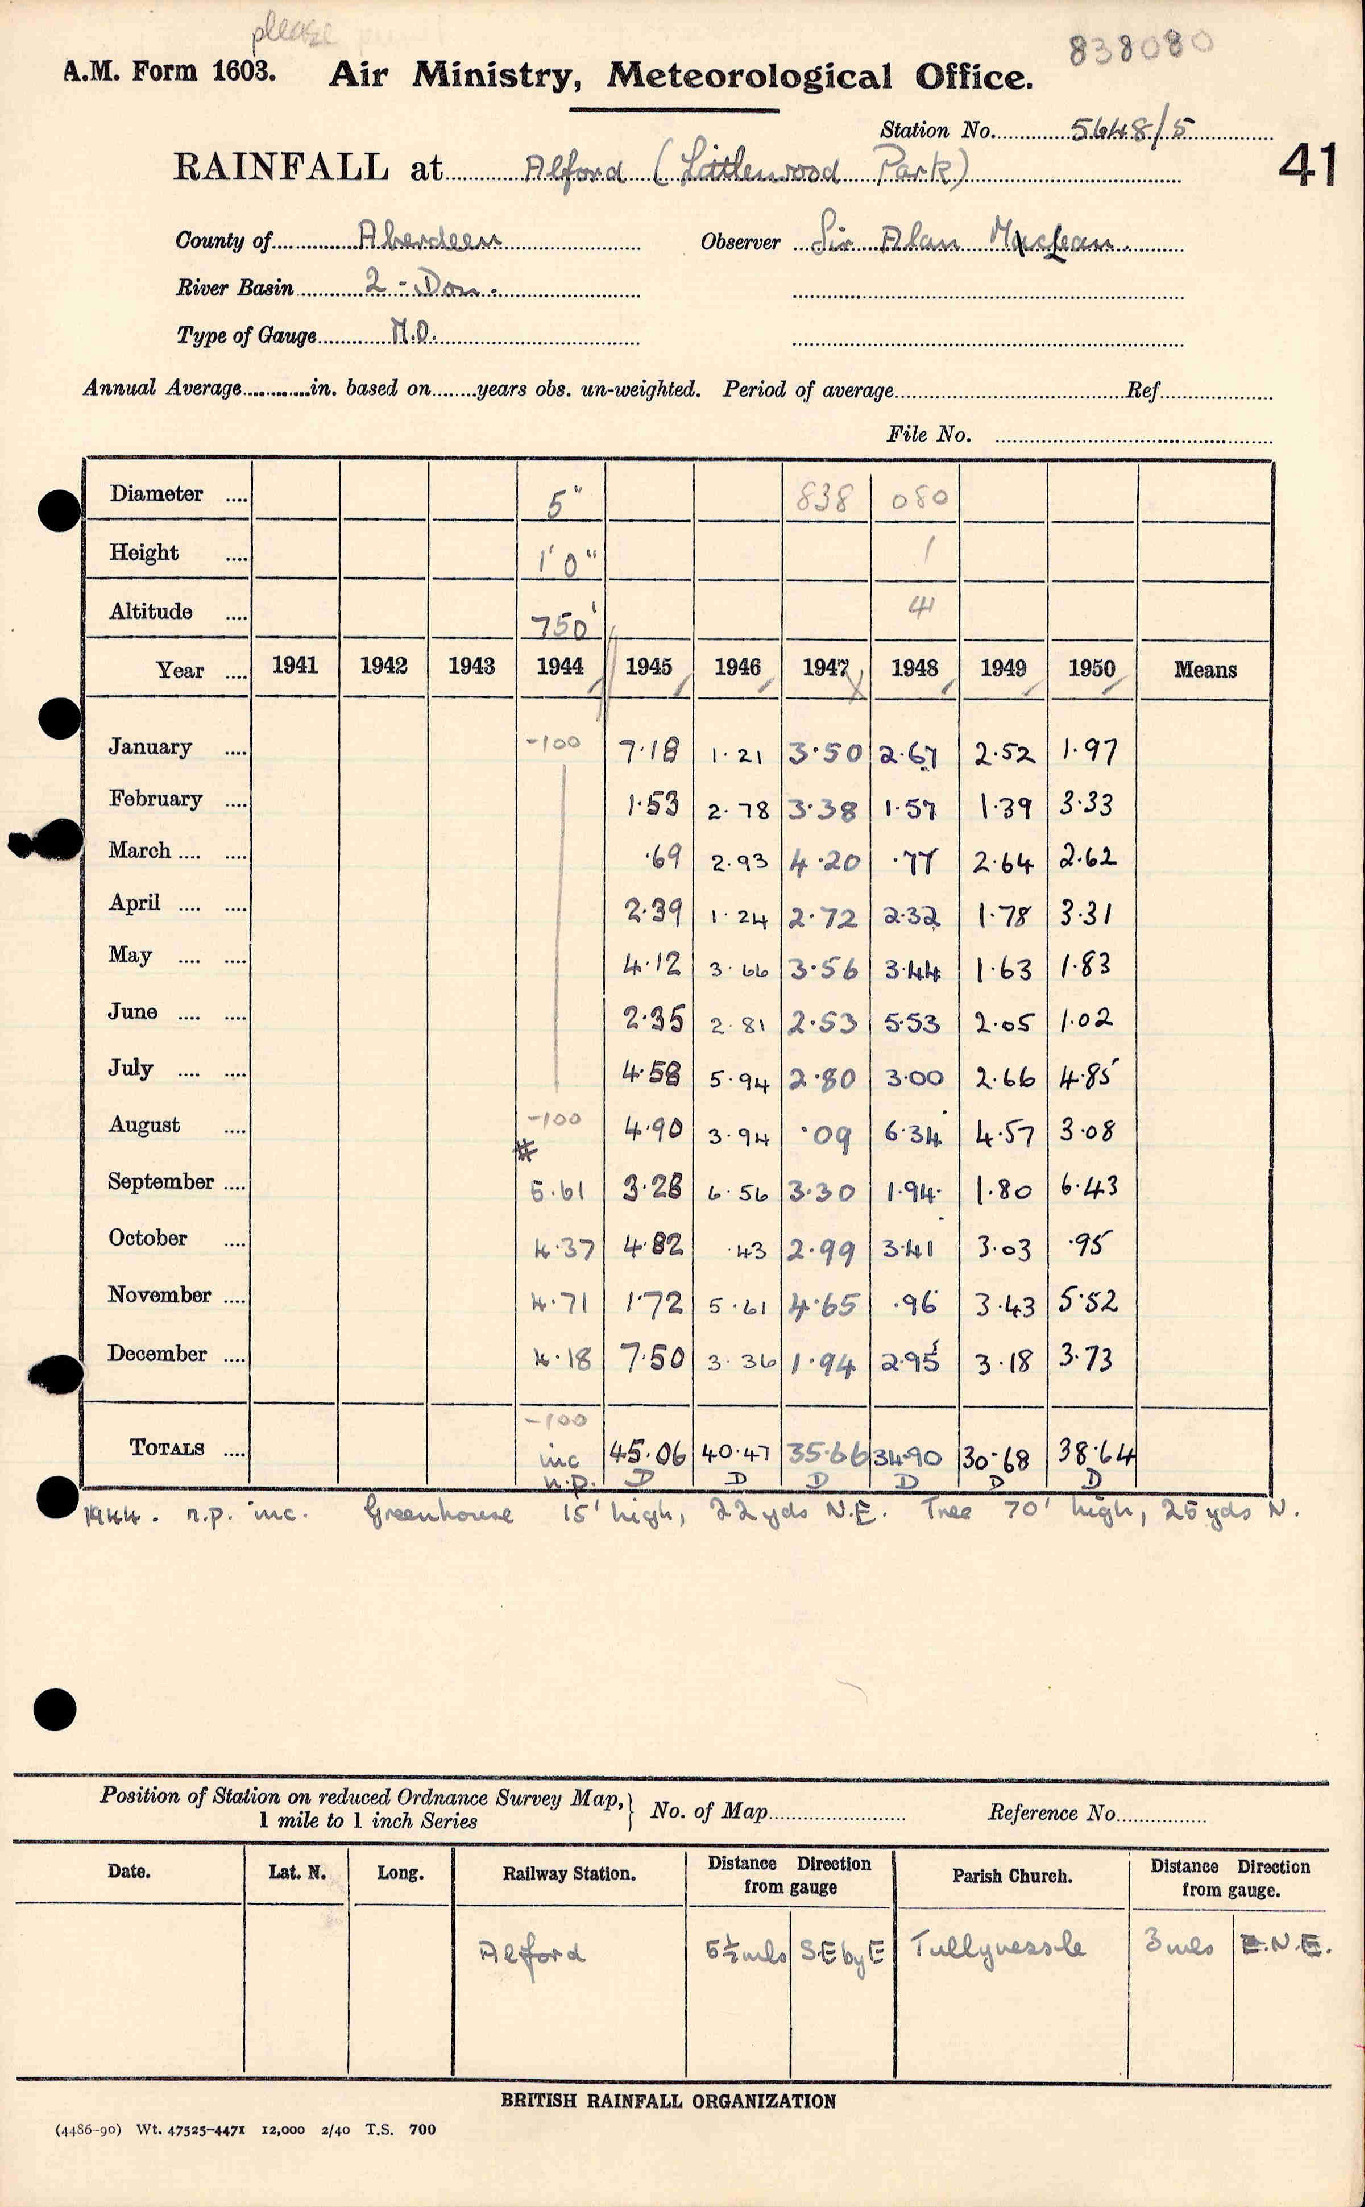 please
838080
A.M. Form 1603. Air Ministry, Meteorological Office.
Station No. 5648/5
41
RAINFALL at Alford (Littlewood Park)
County of Aberdeen Observer Sir Alan MacLean
River Basin 2 - Don.
Type of Gauge M.O.
Annual Average in. based on years obs. un-weighted. Period of average Ref
File No.
Diameter .... 5" 838 080
Height .... 1' 0" 1
Altitude .... 750' 41
Year .... 1941 1942 1943 1944 1945 1946 1947 1948 1949 1950 Means
January .... -100 7.18 1.21 3.50 2.67 2.52 1.97
February .... 1.53 2.78 3.38 1.57 1.39 3.33
March .... .... .69 2.93 4.20 .77 2.64 2.62
April .... .... 2.39 1.24 2.72 2.32 1.78 3.31
May .... .... 4.12 3.66 3.56 3.44 1.63 1.83
June .... .... 2.35 2.81 2.53 5.53 2.05 1.02
July .... .... 4.58 5.94 2.80 3.00 2.66 4.85
August .... -100 4.90 3.94 .09 6.34 4.57 3.08
#
September .... 5.61 3.28 6.56 3.30 1.94 1.80 6.43
October .... 4.37 4.82 .43 2.99 3.41 3.03 .95
November .... 4.71 1.72 5.61 4.65 .96 3.43 5.52
December .... 4.18 7.50 3.36 1.94 2.95 3.18 3.73
-100
TOTALS .... inc 45.06 40.47 35.66 34.90 30.68 38.64
n.p. D D D D D D
1944. n.p. inc. Greenhouse 15' high, 22 yds N.E. Tree 70' high, 25 yds N.
Position of Station on reduced Ordnance Survey Map, 1 mile to 1 inch Series } No. of Map Reference No.
Date. Lat. N. Long. Railway Station. Distance Direction from gauge Parish Church. Distance Direction from gauge.
Alford 5½ mls SE by E Tullynessle 3 mls E.N.E.
BRITISH RAINFALL ORGANIZATION
(4486-90) Wt. 47525-4471 12,000 2/40 T.S. 700